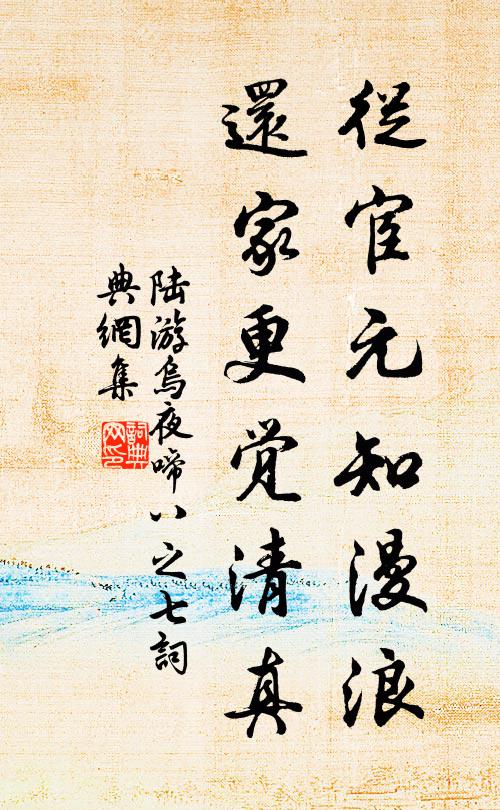 從宦元知漫浪
還家更觉清真
陆游烏夜啼八之七詞
典網集